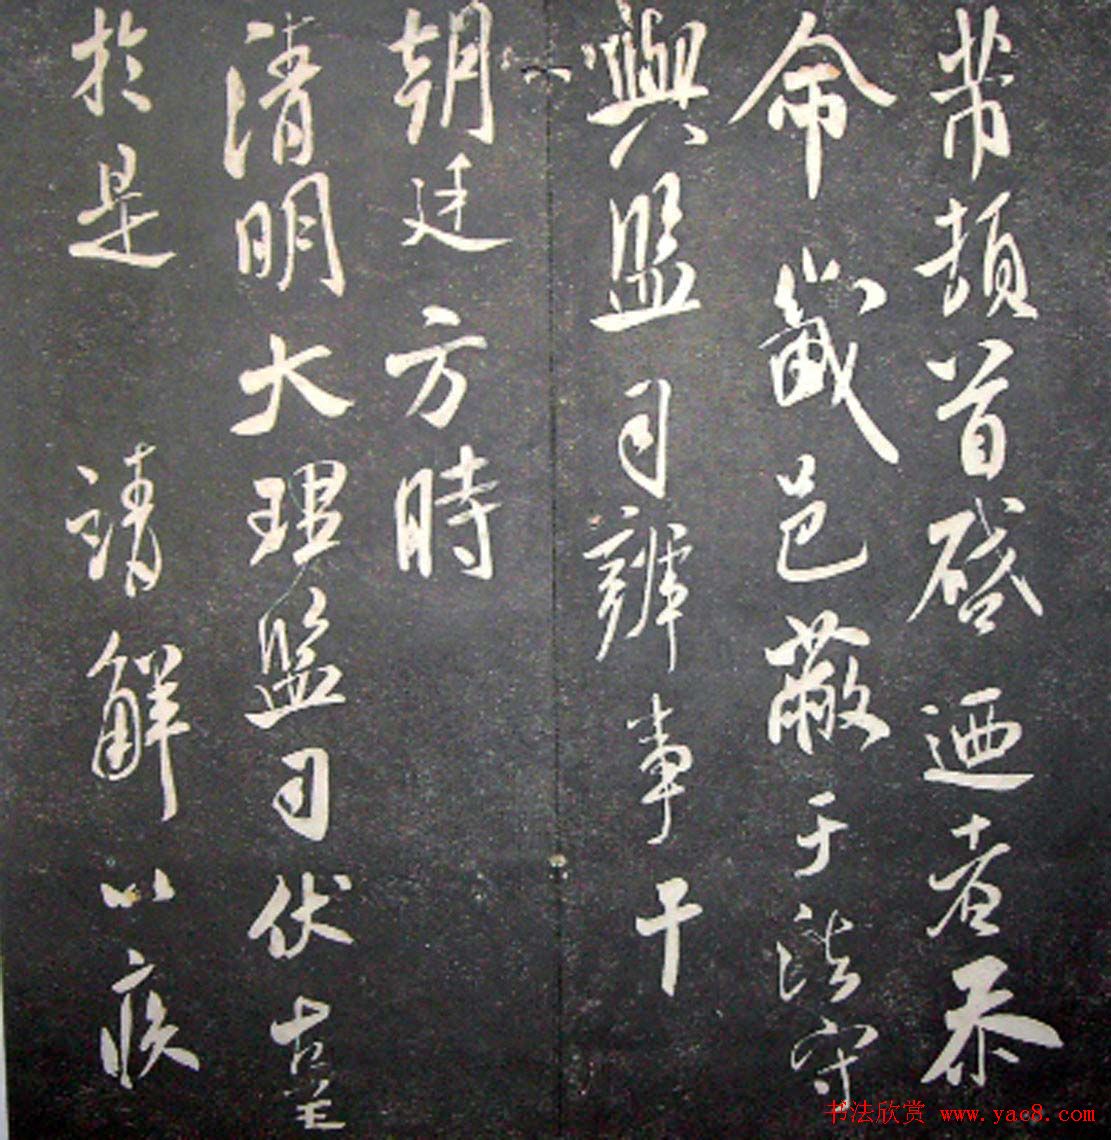 芾頓首啓迺者忝
命畿邑蔽于法守
與監司辨事干
朝廷方時
清明大理監司伏辜
於是 請解以疾
书法欣赏 www.yac8.com